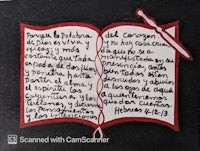 Porque la Palabra
de Dios es viva y
eficaz y más
cortante que toda
espada de dos filos
y penetra hasta
partir el alma y
el espíritu las
coyunturas y los
tuétanos y discierne
los pensamientos
y las intenciones
del corazón.
y no hay cosa creada
que no sea
manifestada en su
presencia antes
bien todas están
desnudas y abiertas
a los ojos de aquel
a quien tenemos
que dar cuentas.
Hebreos 4-12-13
Scanned with CamScanner